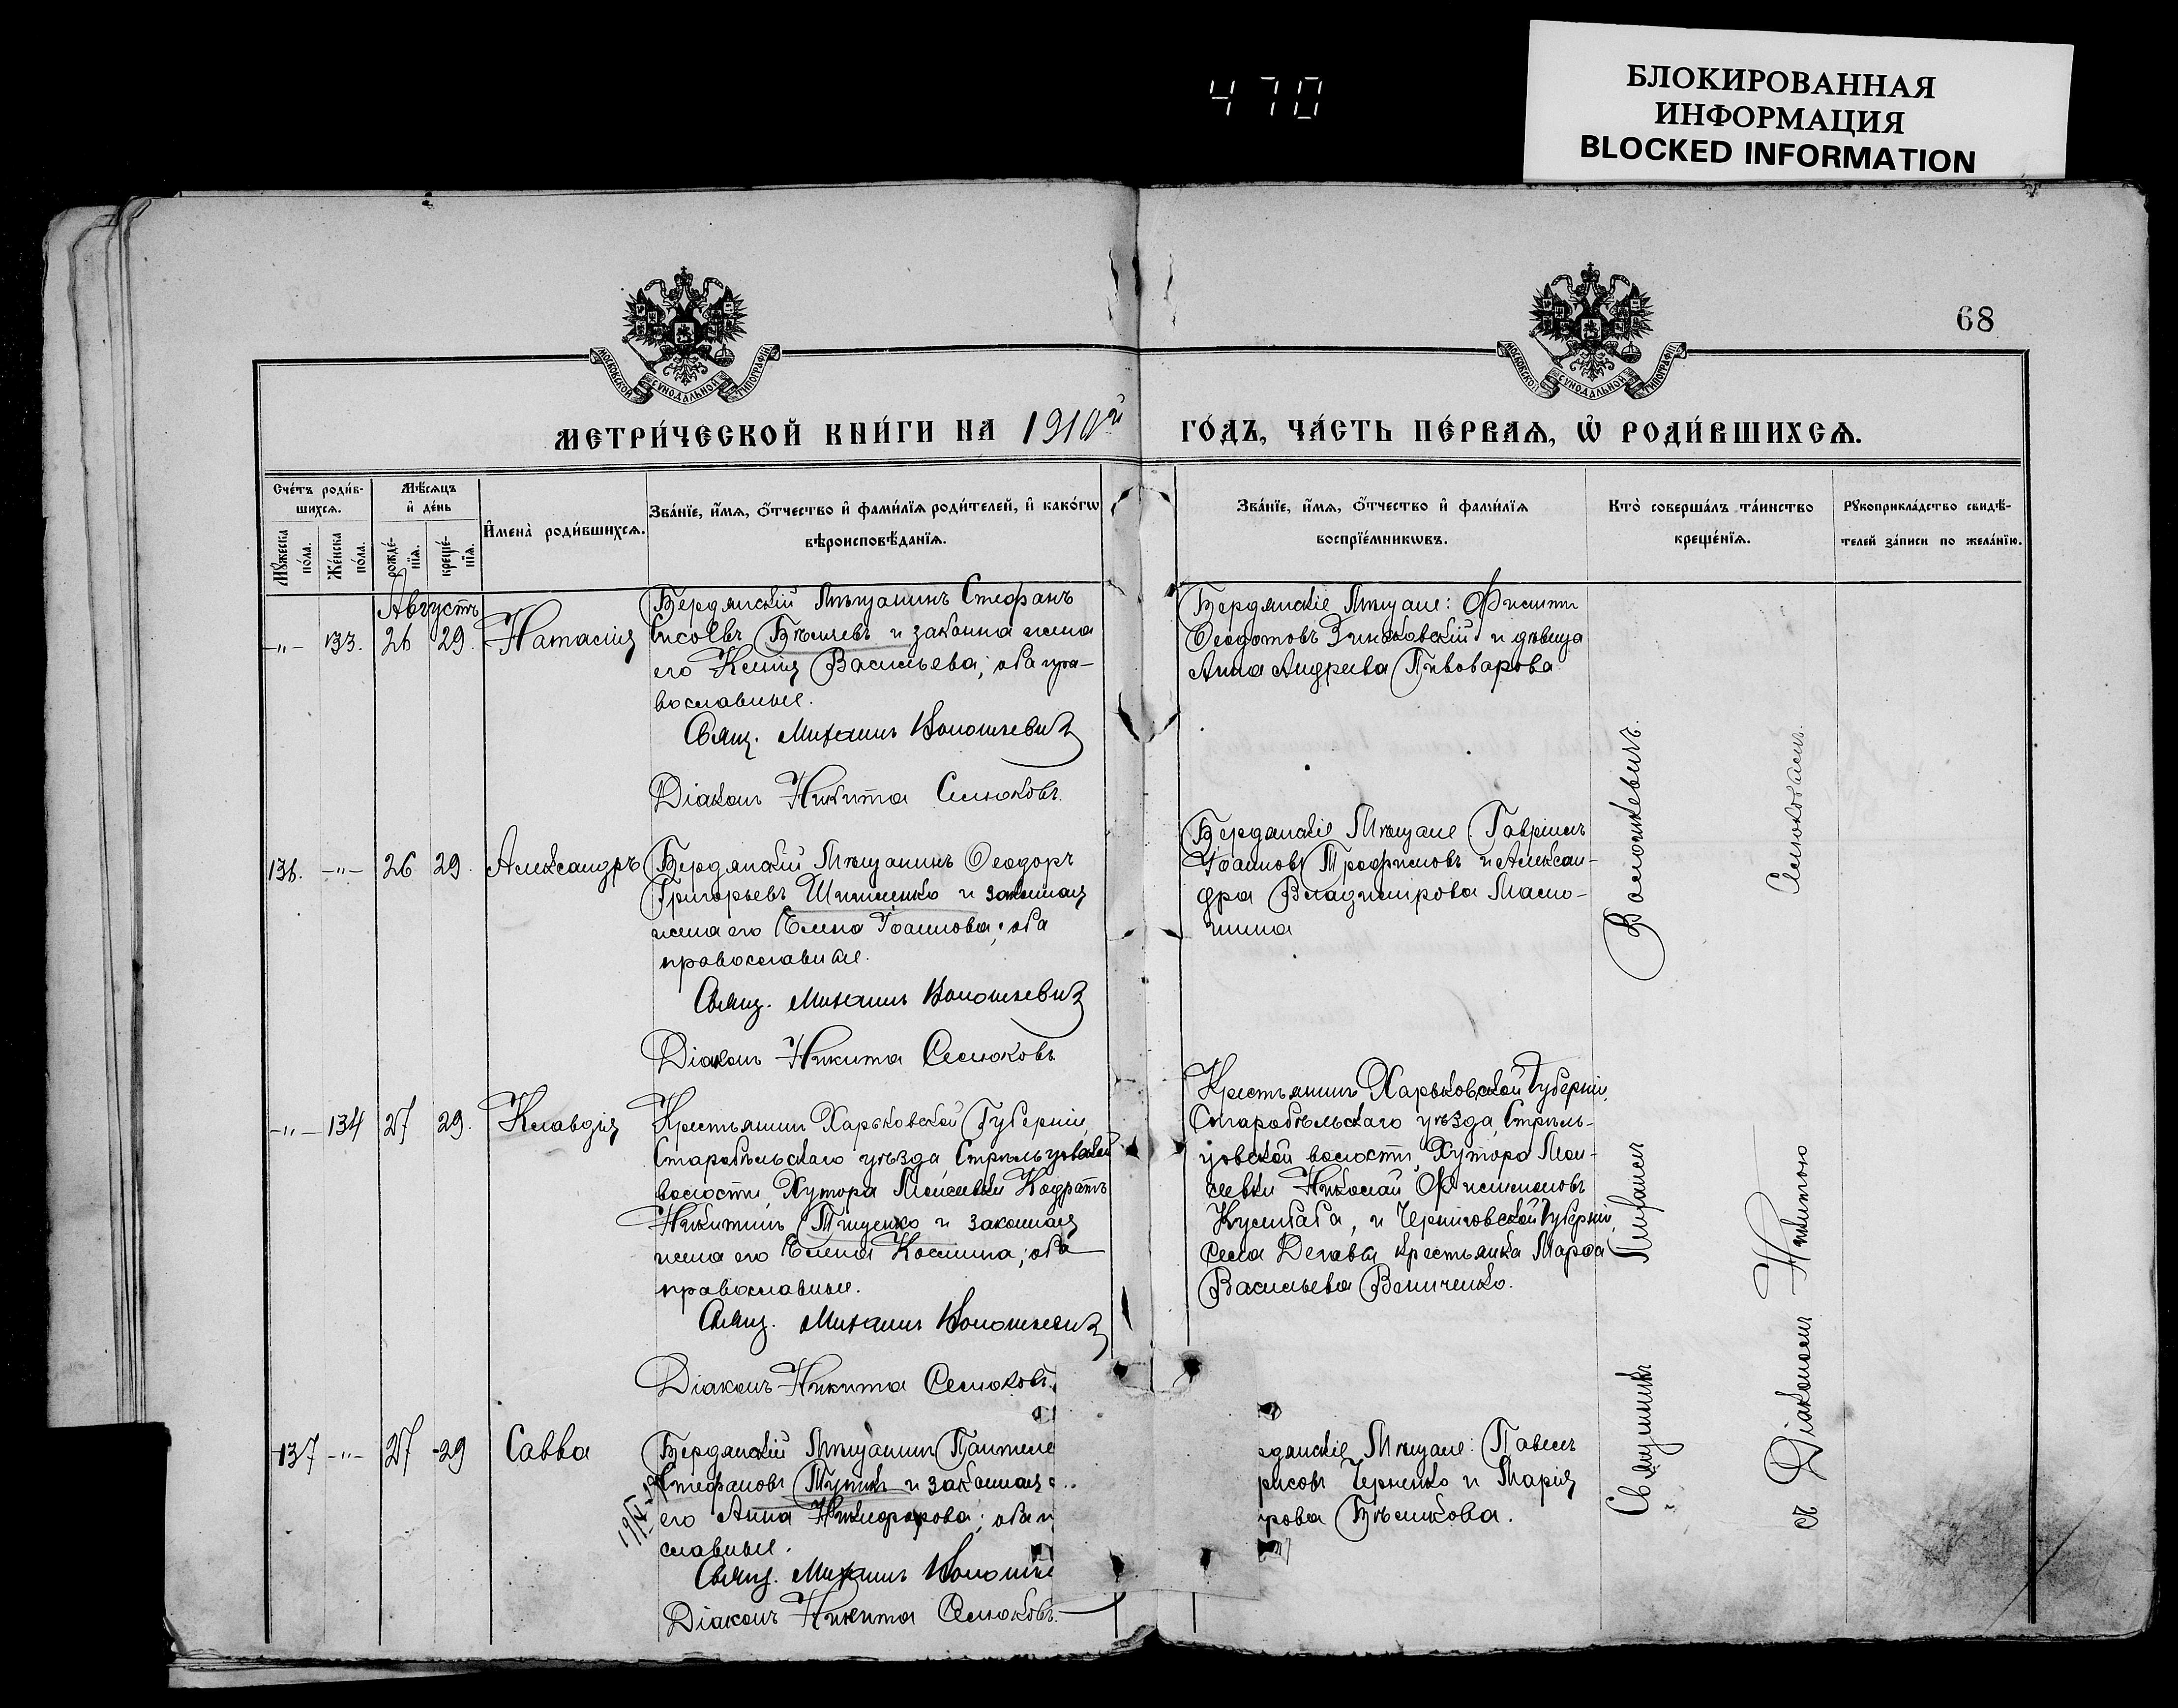 470
БЛОКИРОВАННАЯ
ИНФОРМАЦИЯ
BLOCKED INFORMATION
68
МОСКОВСКОЙ СѴНОДАЛЬНОЙ ТИПОГРАФІИ
МОСКОВСКОЙ СѴНОДАЛЬНОЙ ТИПОГРАФІИ
МЕТРИ́ЧЕСКОЙ КНИ́ГИ НА 1910й ГО́ДЪ, ЧА́СТЬ ПЕ́РВАѦ, Ѽ РОДИ́ВШИХСѦ.
Сче́тъ роди́в-
шихсѧ.
Мꙋ́жеска по́ла.
Же́нска по́ла.
Мѣ́сѧцъ
и҆ де́нь
рожде́-
нїѧ.
креще́-
нїѧ.
И҆мена̀ роди́вшихсѧ.
Зва́нїе, и҆́мѧ, ѻ҆́тчество и҆ фами́лїѧ роди́телей, и҆ како́гѡ
вѣроисповѣ́данїѧ.
Зва́нїе, и҆́мѧ, ѻ҆́тчество и҆ фами́лїѧ
воспрїе́мникѡвъ.
Кто̀ соверша́лъ та́инство
креще́нїѧ.
Рꙋкоприкла́дство свидѣ́-
телей за́писи по жела́нїю.
Августъ
-"- 133. 26 29. Наталія
Бердянскій Мѣщанинъ Стефанъ
и законна жена
его Ксенія Васильева; оба пра-
вославные.
Свящ. Михаилъ Волошкевичъ
Діаконъ Никита Семюковъ.
Бердянскіе Мѣщане: Филиппъ
Ѳеодотовъ Зинковскій и дѣвица
Анна Андреева Пивоварова
136. -"- 26 29. Александръ
Бердянскій Мѣщанинъ Ѳеодоръ
Григорьевъ и законная
жена его Елена Іоаннова; оба
православные.
Свящ. Михаилъ Волошкевичъ
Діаконъ Никита Семюковъ
Бердянскіе Мѣщане Гавріилъ
Іоанновъ Трофимовъ и Алексан-
дра Владимірова Мало-
шина
-"- 134 27 29. Клавдія
Крестьянинъ Харьковской Губерніи,
Старобѣльскаго уѣзда, Стрѣльцовской
волости, Хутора Моисеевки Кодратъ
Никитинъ Тищенко и законная
жена его Елена Космина; оба
православные.
Свящ. Михаилъ Волошкевичъ
Діаконъ Никита Семюковъ.
Крестьянинъ Харьковской Губерніи,
Старобѣльскаго уѣзда, Стрѣль-
цовской волости, Хутора Мои-
сеевки Николай Филимоновъ
и Черниговской Губерніи,
Села крестьянка Марѳа
Васильева Величенко.
137 -"- 27 29 Савва
Бердянскій Мѣщанинъ Пантеле
Стефановъ и законная
его Анна Никифорова; оба п
славные.
Свящ. Михаилъ Волошке
Діаконъ Никита Семюковъ.
рдянскіе Мѣщане: Павелъ
рисовъ Черненко и Марія
рова Бѣликова.
Священникъ Михаилъ Волошкевичъ
съ Діакономъ Никитою Семюковымъ.